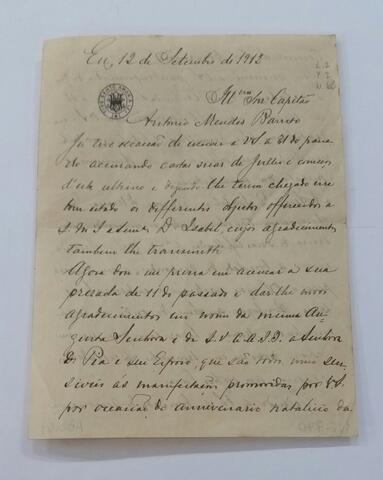 Eu, 12 de Setembro de 1912
Illmo Snr Capitão
Antonio Mendes Barreto
Já tive occasião de escrever a VS a 31 do passa
do accusando cartas suas de Julho e começo
d'este ultimo e dizendo lhe terem chegado em
bom estado os differentes objectos offerecidos a
S. M. I. a Senra D. Isabel cujos agradecimentos
tambem lhe transmitti
Agora dou me pressa em accusar a sua
prezada de 11 do passado e dar lhe novos
agradecimentos em nome da mesma Au
gusta Senhora e de S. V. A. A. I. I. a Senhora
D. Pia e seu Esposo que são todos mui sen
siveis as manifestações promovidas por VS.
por occasião do anniversario natalicio da